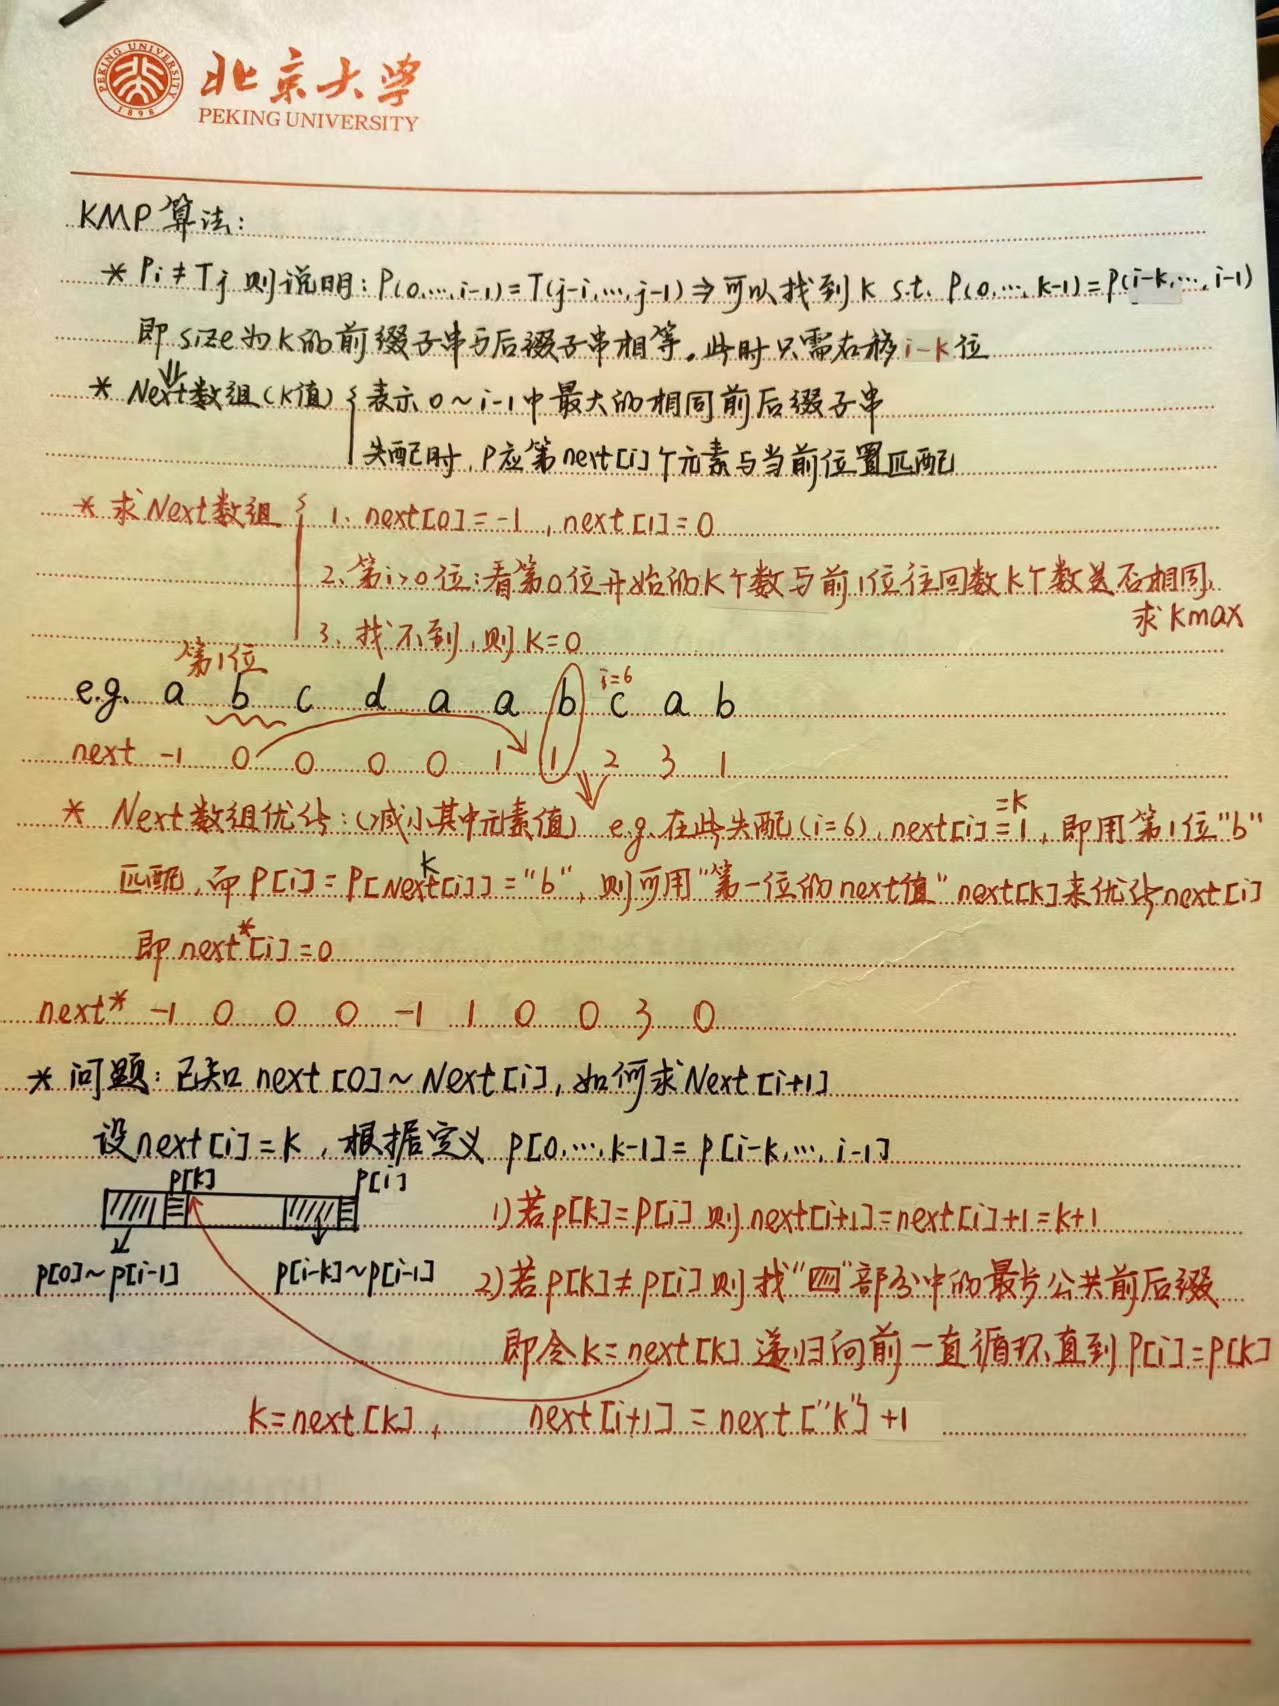 PEKING UNIVERSITY
1898
北京大学
PEKING UNIVERSITY
KMP算法:
* Pi ≠ Tj 则说明: P(0,…,i-1) = T(j-i,…,j-1) ⇒ 可以找到 k s.t. P(0,…,k-1) = P(i-k,…,i-1)
即 size 为 k 的前缀子串与后缀子串相等。此时只需右移 i-k 位
* Next数组(k值) { 表示 0~i-1 中最大的相同前后缀子串
失配时, P应第next[i]个元素与当前位置匹配
* 求Next数组 { 1. next[0] = -1, next[1] = 0
2. 第i>0位: 看第0位开始的k个数与前1位往回数k个数是否相同,
求 kmax
3. 找不到, 则 k=0
第1位
i=6
e.g. a b c d a a b c a b
next -1 0 0 0 0 1 1 2 3 1
* Next数组优化: (减小其中元素值) e.g. 在此失配(i=6), next[i] = 1, 即用第1位"b"
=k
匹配, 而 P[i] = P[Next[i]] = "b", 则可用"第一位的next值" next[k]来优化next[i]
k
即 next*[i] = 0
next* -1 0 0 0 -1 1 0 0 3 0
* 问题: 已知 next[0]~Next[i], 如何求Next[i+1]
设next[i] = k, 根据定义 P[0,…,k-1] = P[i-k,…,i-1]
P[k] P[i]
1) 若p[k] = P[i] 则 next[i+1] = next[i]+1 = k+1
P[0]~P[i-1] P[i-k]~P[i-1]
2) 若p[k] ≠ p[i] 则找"▨"部分中的最长公共前后缀
即令 k = next[k] 递归向前一直循环直到 P[i] = P[k]
k = next[k], next[i+1] = next["k"] + 1